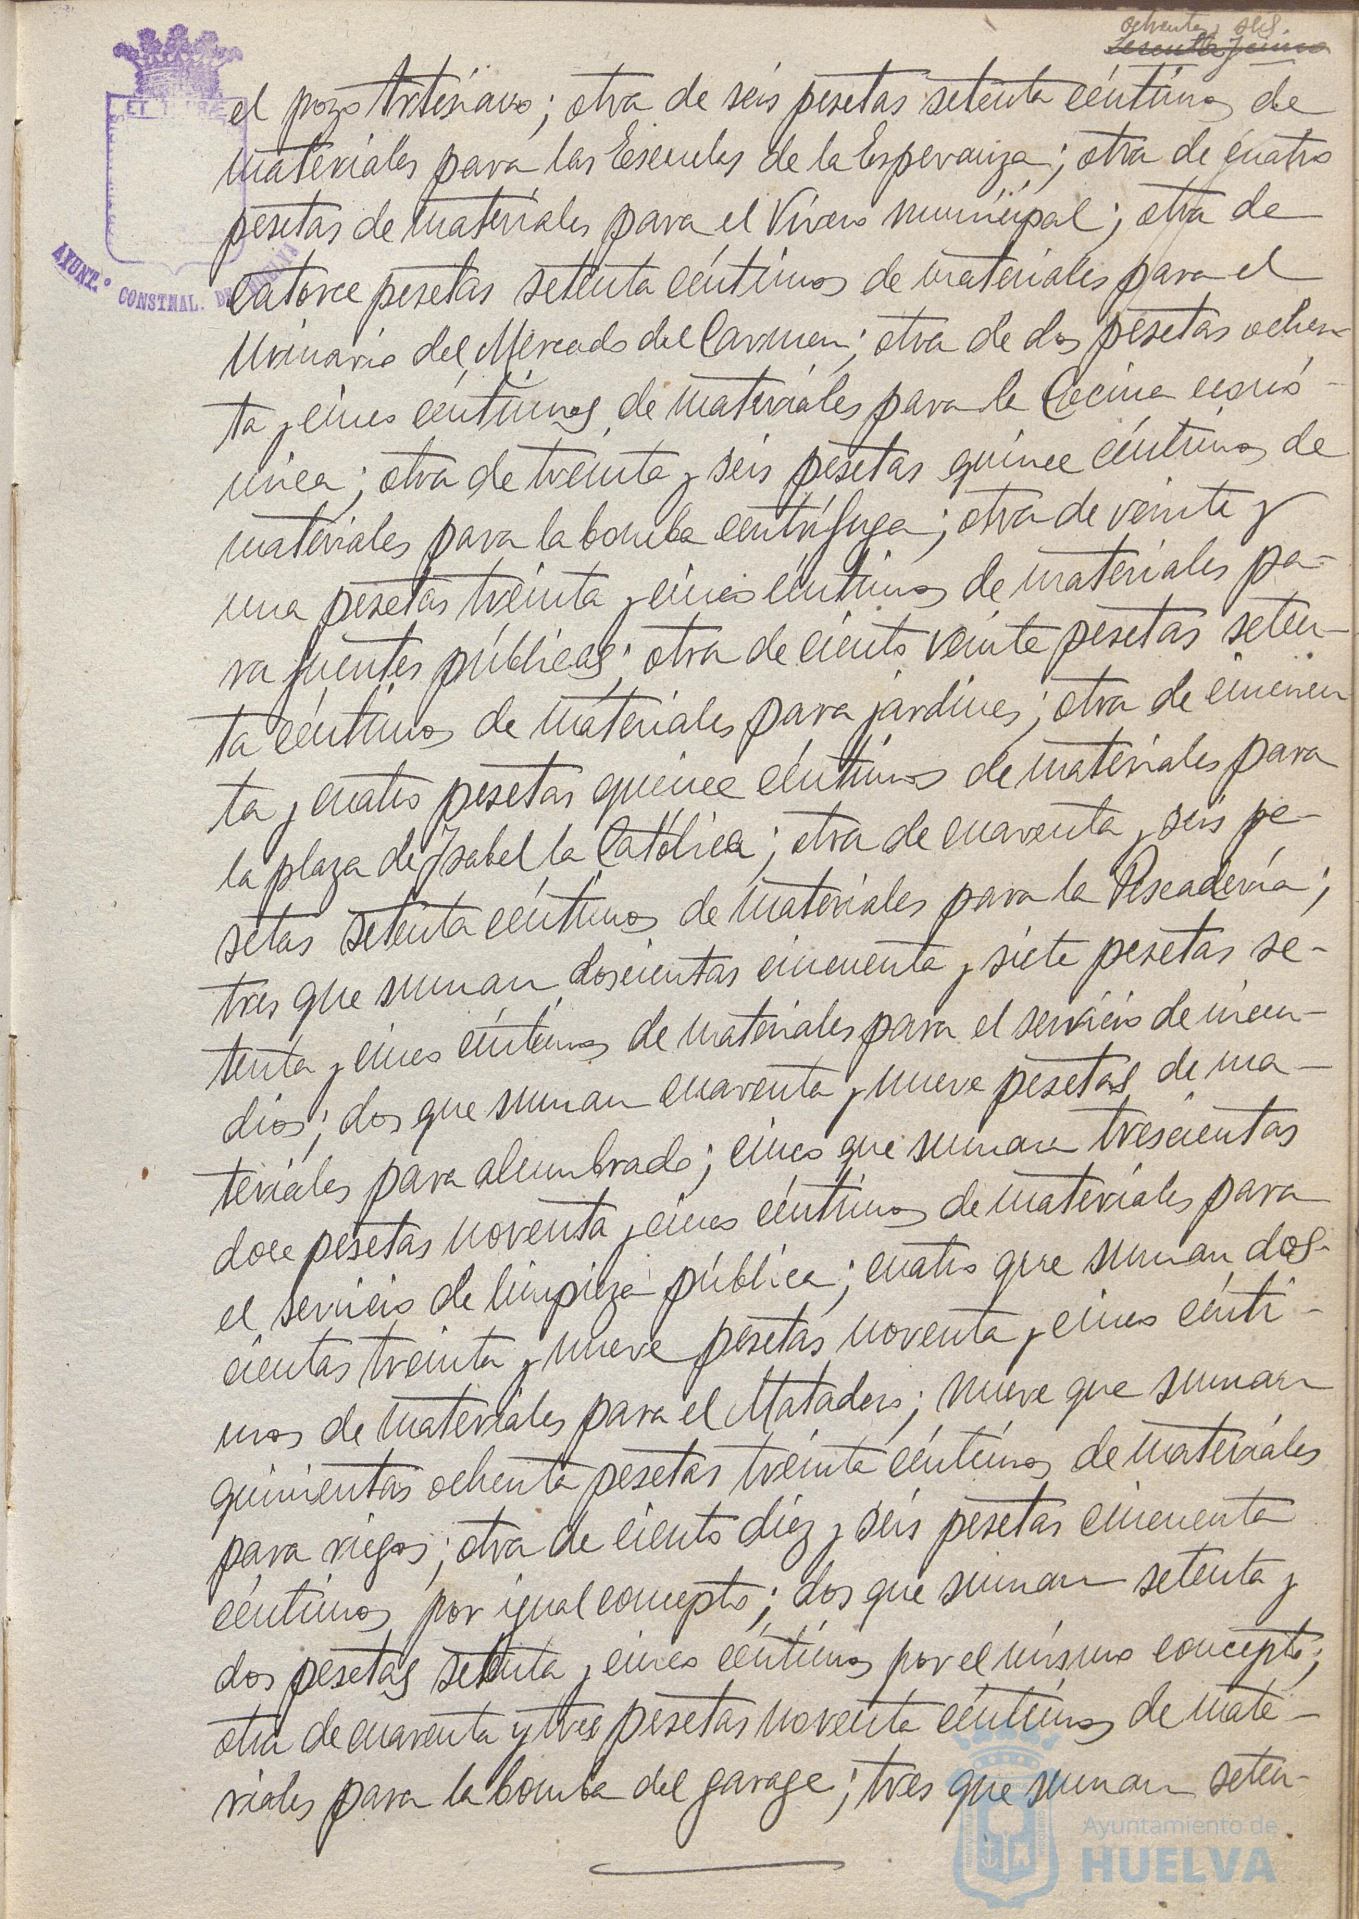 ochenta y seis
Sesenta y cinco
el pozo Artesiano; otra de seis pesetas setenta céntimos de
materiales para las Escuelas de la Esperanza; otra de cuatro
pesetas de materiales para el Vivero municipal; otra de
catorce pesetas setenta céntimos de materiales para el
Urinario del Mercado del Carmen; otra de dos pesetas ochen-
ta y cinco céntimos de materiales para la Cocina econó-
mica; otra de treinta y seis pesetas quince céntimos de
materiales para la bomba centrífuga; otra de veinte y
una pesetas treinta y cinco céntimos de materiales pa-
ra fuentes públicas; otra de ciento veinte pesetas seten-
ta céntimos de materiales para jardines; otra de cincuen
ta y cuatro pesetas quince céntimos de materiales para
la plaza de Isabel la Católica; otra de cuarenta y seis pe-
setas setenta céntimos de materiales para la Pescadería;
tres que suman doscientas cincuenta y siete pesetas se-
tenta y cinco céntimos de materiales para el servicio de incen-
dios; dos que suman cuarenta y nueve pesetas de ma-
teriales para alumbrado; cinco que suman trescientas
doce pesetas noventa y cinco céntimos de materiales para
el servicio de limpieza pública; cuatro que suman dos-
cientas treinta y nueve pesetas noventa y cinco cénti-
mos de materiales para el Matadero; nueve que suman
quinientas ochenta pesetas treinta céntimos de materiales
para riegos; otra de ciento diez y seis pesetas cincuenta
céntimos por igual concepto; dos que suman setenta y
dos pesetas setenta y cinco céntimos por el mismo concepto;
otra de cuarenta y tres pesetas noventa céntimos de mate-
riales para la bomba del garage; tres que suman seten-
AYUNT.º CONSTNAL. DE
Ayuntamiento de
HUELVA